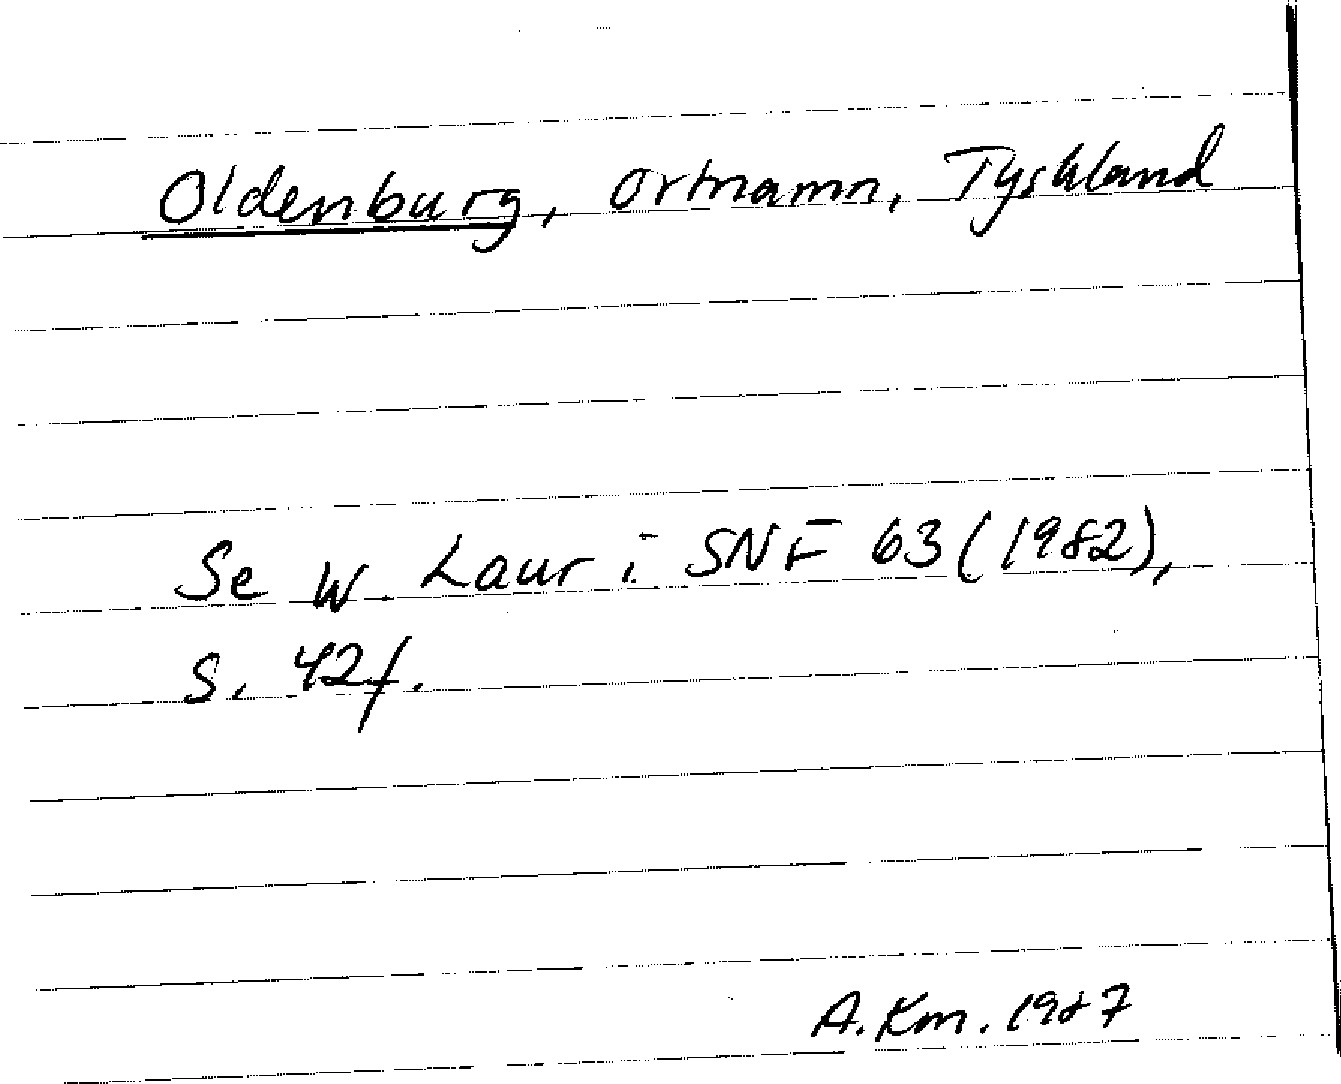 Oldenburg, ortnamn, Tyskland
Se W. Laur i SNF 63 (1982),
s. 42f.
A. Km. 1987